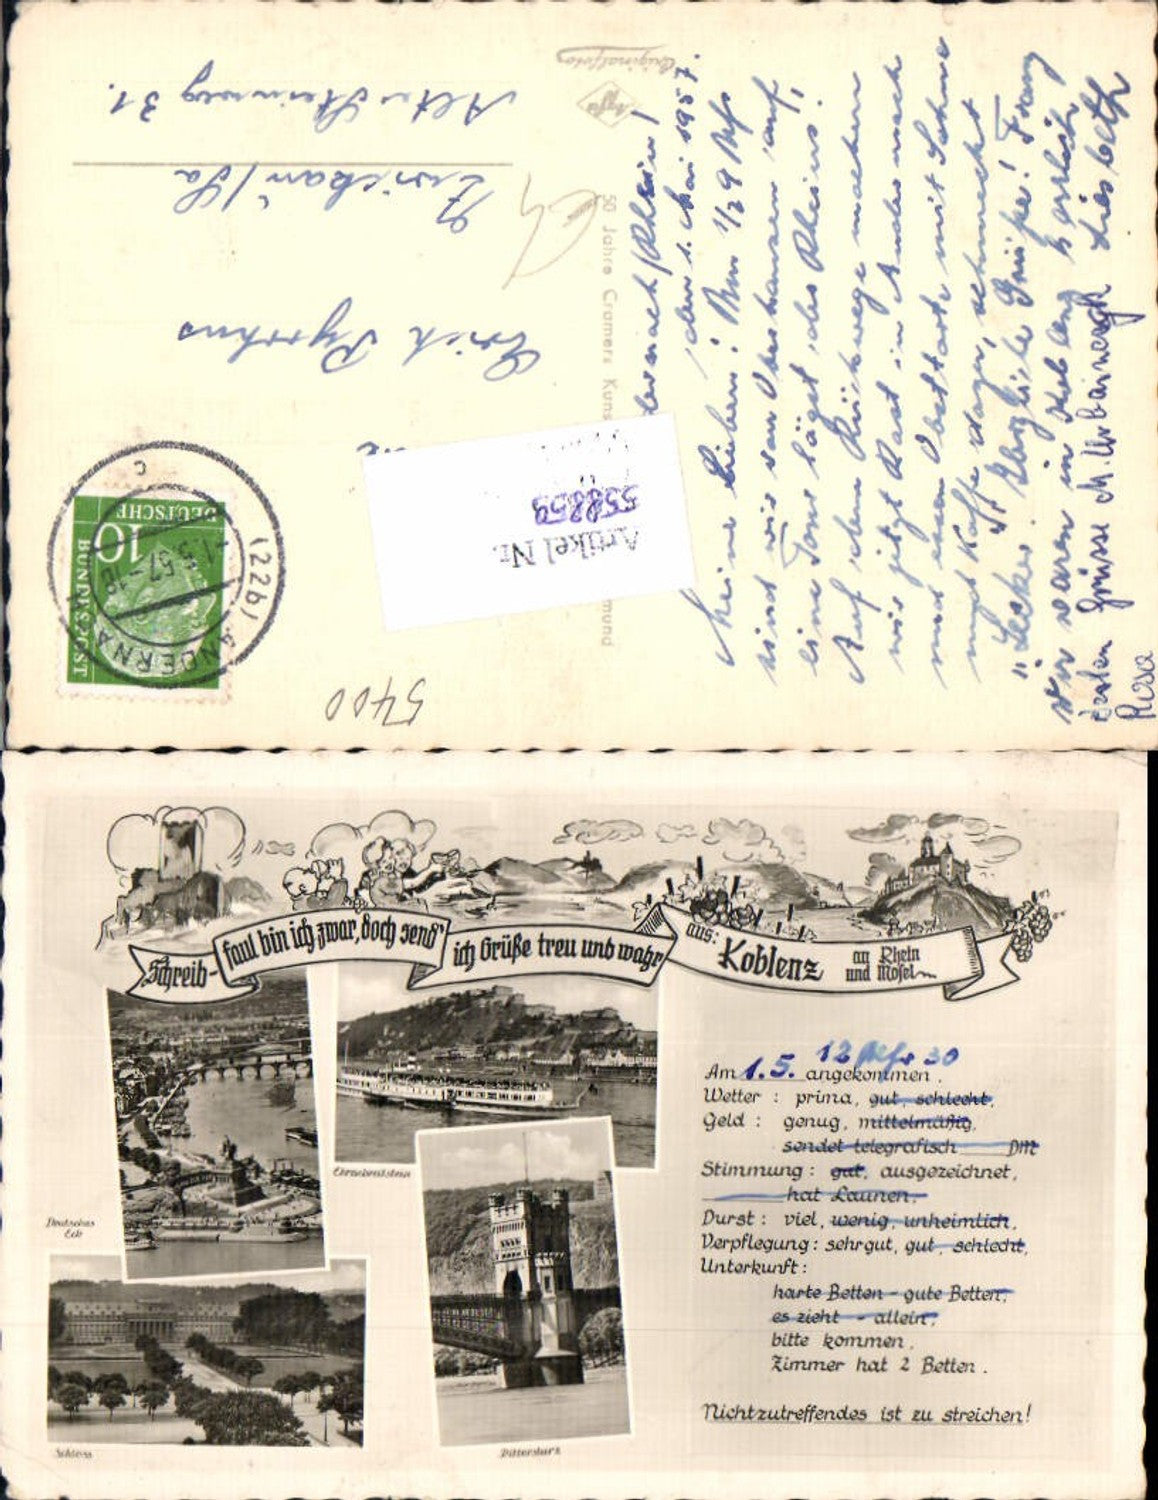 Originalfoto
Agfa
50 Jahre Cramers Kuns
mund
Andernach/Rhein
den 1. Mai 1957.
Meine Lieben! Um 1/2 9 Uhr
sind wir von Oberhausen auf
eine Tour längst des Rheins!
Auf dem Rückwege machen
wir jetzt Rast in Andernach
und essen Obsttorte mit Sahne
und Kaffe dazu, schmeckt
"Lecker". Herzliche Grüße! Franz
Wir waren in Koblenz herrlich
Grüsse Liesbeth
Rosa
Erich
Zwickau/Sa
Alter Steinweg 31.
Artikel Nr.
558859
DEUTSCHE
BUNDESPOST
10
(22b) ANDERNA
-1.5.57-18
c
5400
Schreib-faul bin ich zwar, doch send' ich Grüße treu und wahr aus: Koblenz an Rhein und Mosel
Deutsches Eck
Ehrenbreitstein
Schloss
Rittersturz
Am 1.5. 12 Uhr 30 angekommen.
Wetter : prima, gut, schlecht,
Geld : genug, mittelmäßig,
sendet telegrafisch DM
Stimmung : gut, ausgezeichnet,
hat Launen.
Durst : viel, wenig, unheimlich,
Verpflegung : sehr gut, gut, schlecht,
Unterkunft :
harte Betten - gute Betten,
es zieht - allein,
bitte kommen,
Zimmer hat 2 Betten .
Nichtzutreffendes ist zu streichen!